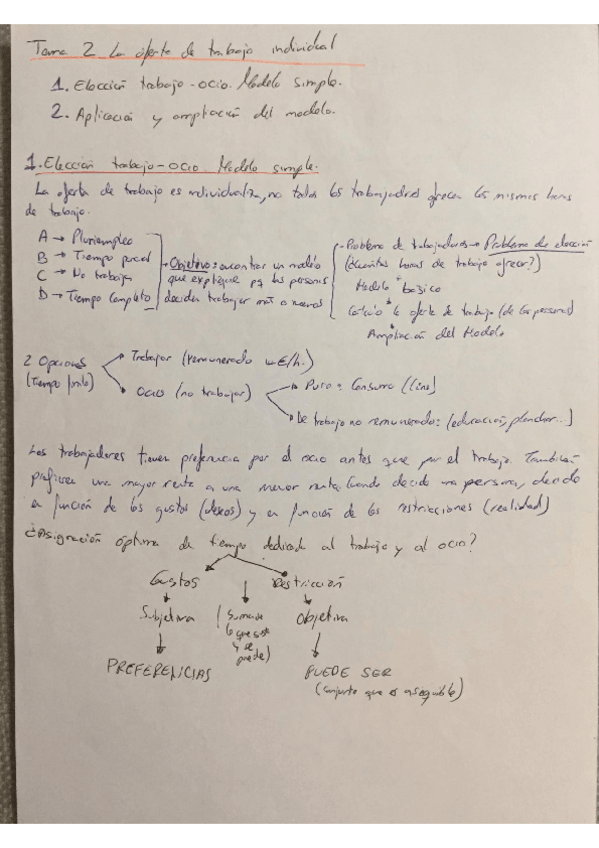 Tema 2 La oferta de trabajo individual
1. Elección trabajo-ocio. Modelo simple.
2. Aplicación y ampliación del modelo.
1. Elección trabajo-ocio. Modelo simple.
La oferta de trabajo es individual, no todos los trabajadores ofrecen las mismas horas
de trabajo.
A → Pluriempleo
B → Tiempo parcial
C → No trabaja
D → Tiempo completo
Objetivo: encontrar un modelo
que explique pq las personas
deciden trabajar más o menos
Problema de trabajadores → Problema de elección
(¿Cuántas horas de trabajo ofrecer?)
Modelo básico
la oferta de trabajo (de las personas)
Ampliación del Modelo
2 Opciones
(Tiempo finito)
Trabajar (remunerado w €/h.)
Ocio (no trabajar)
Puro: Consumo (cine)
De trabajo no remunerado: (educación, planchar...)
Los trabajadores tienen preferencia por el ocio antes que por el trabajo. También
prefieren una mayor renta a una menor renta. Cuando decide una persona, decide
en función de los gustos (deseos) y en función de las restricciones (realidad)
¿Asignación óptima de tiempo dedicado al trabajo y al ocio?
Gustos
Restricción
Subjetiva
(Suma de
lo que
y se
puede)
Objetiva
PREFERENCIAS
PUEDE SER
(conjunto que es asequible)